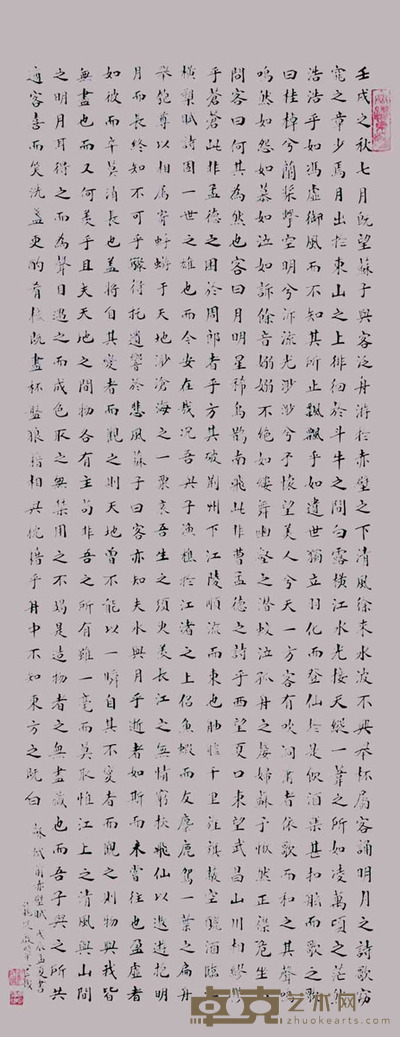 壬戌之秋七月既望蘇子與客泛舟游於赤壁之下清風徐來水波不興舉杯屬客誦明月之詩歌窈
窕之章少焉月出於東山之上徘徊於斗牛之間白露橫江水光接天縱一葦之所如凌萬頃之茫然
浩浩乎如馮虛御風而不知其所止飄飄乎如遺世獨立羽化而登仙於是飲酒樂甚扣舷而歌之歌
曰桂棹兮蘭槳擊空明兮泝流光渺渺兮予懷望美人兮天一方客有吹洞簫者依歌而和之其聲嗚
嗚然如怨如慕如泣如訴餘音嫋嫋不絕如縷舞幽壑之潛蛟泣孤舟之嫠婦蘇子愀然正襟危坐而
問客曰何其為然也客曰月明星稀烏鵲南飛此非曹孟德之詩乎西望夏口東望武昌山川相繆鬱
乎蒼蒼此非孟德之困於周郎者乎方其破荊州下江陵順流而東也舳艫千里旌旗蔽空釃酒臨江
橫槊賦詩固一世之雄也而今安在哉況吾與子漁樵於江渚之上侶魚蝦而友麋鹿駕一葉之扁舟
舉匏尊以相屬寄蜉蝣于天地渺滄海之一粟哀吾生之須臾羨長江之無窮挾飛仙以遨遊抱明
月而長終知不可乎驟得托遺響於悲風蘇子曰客亦知夫水與月乎逝者如斯而未嘗往也盈虛者
如彼而卒莫消長也蓋將自其變者而觀之則天地曾不能以一瞬自其不變者而觀之則物與我皆
無盡也而又何羨乎且夫天地之間物各有主苟非吾之所有雖一毫而莫取惟江上之清風與山間
之明月耳得之而為聲目遇之而成色取之無禁用之不竭是造物者之無盡藏也而吾子與之所共
適客喜而笑洗盞更酌肴核既盡杯盤狼藉相與枕藉乎舟中不知東方之既白
蘇軾前赤壁賦
艺术网
zhuokearts.com